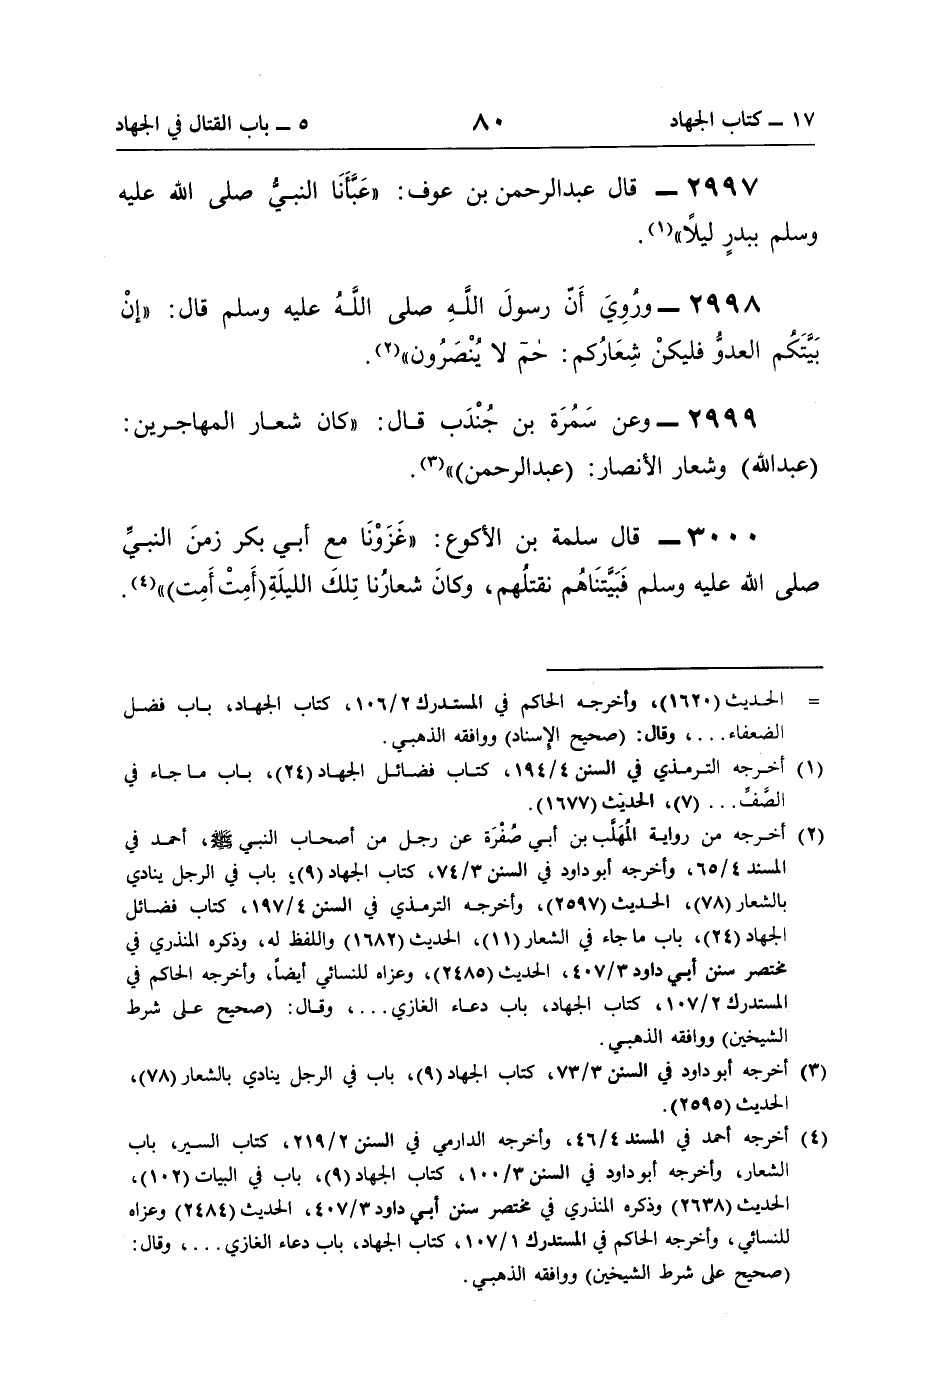 ١٧ ــ كتاب الجهاد ٨٠ ٥ ــ باب القتال في الجهاد
٢٩٩٧ ــ قال عبدالرحمن بن عوف: «عَبَّأَنَا النبيُّ صلى الله عليه
وسلم ببدرٍ ليلًا»(١).
٢٩٩٨ ــ ورُوِيَ أَنّ رسولَ اللَّهِ صلى اللَّهُ عليه وسلم قال: «إنْ
بَيَّتَكُم العدوُّ فليكنْ شِعَارُكم: حٰمٓ لا يُنْصَرُون»(٢).
٢٩٩٩ ــ وعن سَمُرَة بن جُنْدَب قال: «كان شعار المهاجرين:
(عبدالله) وشعار الأنصار: (عبدالرحمن)»(٣).
٣٠٠٠ ــ قال سلمة بن الأكوع: «غَزَوْنَا مع أبي بكر زمنَ النبيِّ
صلى الله عليه وسلم فَبَيَّتنَاهُم نقتلُهم، وكانَ شعارُنا تِلكَ الليلَةِ (أَمِتْ أَمِت)»(٤).
= الحديث (١٦٢٠)، وأخرجه الحاكم في المستدرك ١٠٦/٢، كتاب الجهاد، باب فضل
الضعفاء...، وقال: (صحيح الإسناد) ووافقه الذهبي.
(١) أخرجه الترمذي في السنن ١٩٤/٤، كتاب فضائل الجهاد (٢٤)، باب ما جاء في
الصَّفِّ... (٧)، الحديث (١٦٧٧).
(٢) أخرجه من رواية المُهَلَّب بن أبي صُفْرَة عن رجل من أصحاب النبي ﷺ، أحمد في
المسند ٦٥/٤، وأخرجه أبو داود في السنن ٧٤/٣، كتاب الجهاد (٩)، باب في الرجل ينادي
بالشعار (٧٨)، الحديث (٢٥٩٧)، وأخرجه الترمذي في السنن ١٩٧/٤، كتاب فضائل
الجهاد (٢٤)، باب ما جاء في الشعار (١١)، الحديث (١٦٨٢) واللفظ له، وذكره المنذري في
مختصر سنن أبي داود ٤٠٧/٣، الحديث (٢٤٨٥)، وعزاه للنسائي أيضاً، وأخرجه الحاكم في
المستدرك ١٠٧/٢، كتاب الجهاد، باب دعاء الغازي...، وقال: (صحيح على شرط
الشيخين) ووافقه الذهبي.
(٣) أخرجه أبو داود في السنن ٧٣/٣، كتاب الجهاد (٩)، باب في الرجل ينادي بالشعار (٧٨)،
الحديث (٢٥٩٥).
(٤) أخرجه أحمد في المسند ٤٦/٤، وأخرجه الدارمي في السنن ٢١٩/٢، كتاب السير، باب
الشعار، وأخرجه أبو داود في السنن ١٠٠/٣، كتاب الجهاد (٩)، باب في البيات (١٠٢)،
الحديث (٢٦٣٨) وذكره المنذري في مختصر سنن أبي داود ٤٠٧/٣، الحديث (٢٤٨٤) وعزاه
للنسائي، وأخرجه الحاكم في المستدرك ١٠٧/١، كتاب الجهاد، باب دعاء الغازي...، وقال:
(صحيح على شرط الشيخين) ووافقه الذهبي.